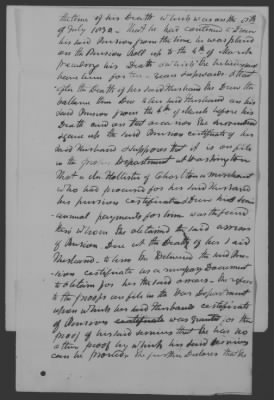 the time of his Death which was on the 
of July 1832 - that he had continued to Draw
his said Pension from the time he was placed
on the Pension Roll up to the 4th of March
preceding his Death on which the
him for the years
after the Death of her said Husband she Drew the
balance then Due to her said Husband on his
said Pension from the 4th of March upon his
Death and on that occasion she
gave up the said Pension certificate of her
said Husband supposes that it is on file
in the proper Department at Washington
That a Mr Hollister of Charlton a merchant
who had procured for her said Husband
his pension certificate & Drew his semi
annual payments for him was the person
thro whom she obtained the said arrears
of Pension Due at the Death of her said
Husband - to him she Delivered the said Pen-
sion certificate as a necessary Document
to obtain for her the said arrears - she refers
to the proofs on file in the War Department
upon which her said Husbands certificate
of Pension certificate was granted, for the
proof of his said services that she has no
other proof by which his said services
can be proved. She further Declares that she